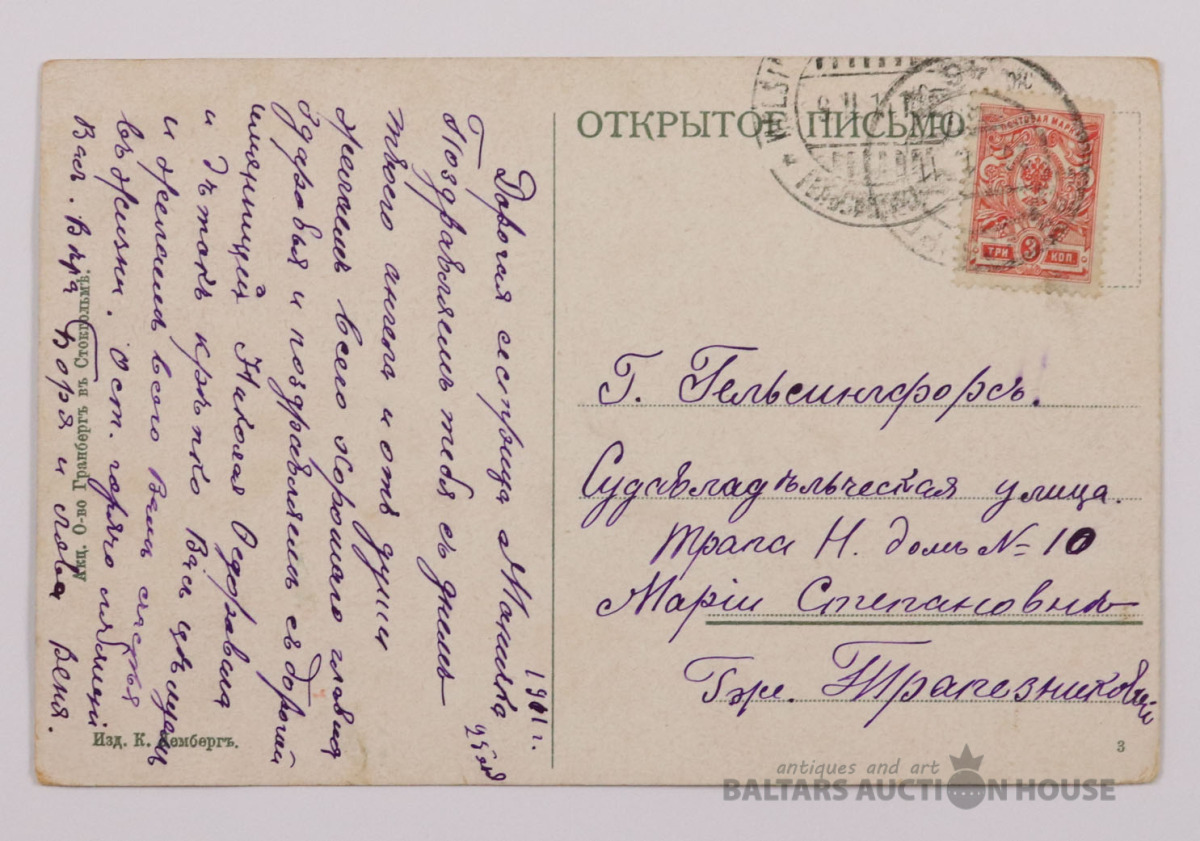 ОТКРЫТОЕ ПИСЬМО
ПОЧТОВАЯ МАРКА
ТРИ 3 КОП
Г. Гельсингфорсъ.
Судавладѣльческая улица.
Трапа Н. домъ № 10
Маріи Степановнѣ
Гэрс. Трапезниковой
Дорогая сестрица Манилка
Поздравляемъ тебя съ днемъ
твоего ангела и отъ души
желаемъ всего хорошаго главная
здаровья и поздравляемъ съ дорогой
имянницей Николая
и дѣтокъ крѣпко Васъ цѣлуемъ
и желаемъ всего Вамъ счастья
въ жизни. Ост. горячо любящіи
Васъ. Вѣра Боря и Веня.
1911 г.
Акц. О-во Гранбергъ въ Стокгольмѣ.
Изд. К. Лембергъ.
3
antiques and art
BALTARS AUCTION HOUSE